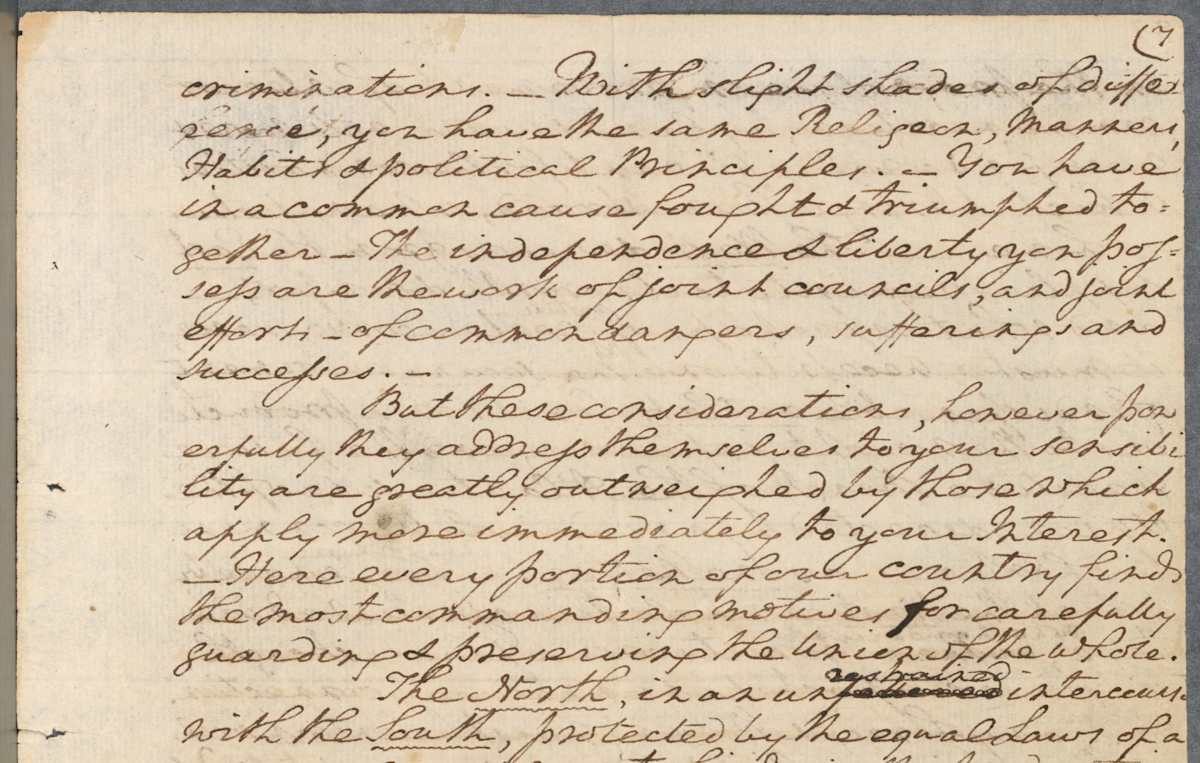 (7
criminations. — With slight shades of diffe
rence, you have the same Religeon, Manners,
Habits & political Principles. — You have
in a common cause fought & triumphed to=
gether — The independence & liberty you pos=
sess are the work of joint councils, and joint
efforts — of common dangers, sufferings and
successes. —
But these considerations, however pow
erfully they address themselves to your sensibi
lity are greatly outweighed by those which
apply more immediately to your Interest.
— Here every portion of our country finds
the most commanding motives for carefully
guarding & preserving the Union of the whole.
restrained
The North, in an un intercourse
with the South, protected by the equal Laws of a